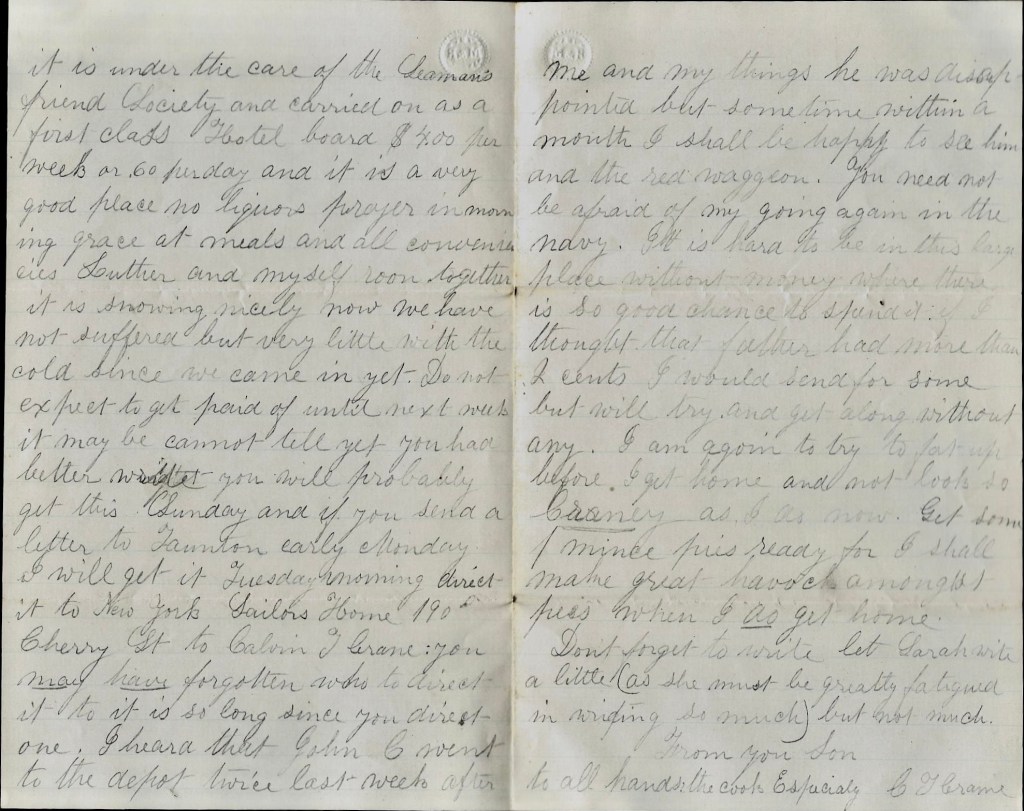 it is under the care of the Seamans
friend Society and carried on as a
first class Hotel board $4.00 per
week or .60 per day and it is a very
good place no liquors prayer in morn
ing grace at meals and all convenien
cies Luther and myself room together
it is snowing nicely now we have
not suffered but very little with the
cold since we came in yet. Do not
expect to get paid of until next week
it may be cannot tell yet you had
better write you will probably
get this Sunday and if you send a
letter to Taunton early Monday
I will get it Tuesday morning direct
it to New York Sailors Home 190
Cherry St to Calvin T Crane: you
may have forgotten who to direct
it to it is so long since you direct
one. I heard that John C went
to the depot twice last week after
me and my things he was disap
pointed but sometime within a
month I shall be happy to see him
and the red waggeon. You need not
be afraid of my going again in the
navy. It is hard to be in this large
place without money where there
is so good chance to spend it: if I
thought that father had more than
2 cents I would send for some
but will try and get along without
any. I am agoin to try to fat up
before I get home and not look so
as I do now. Get some
mince pies ready for I shall
make great havock amongst
pies when I do get home.
Dont forget to write let Sarah write
a little (as she must be greatly fatigued
in writing so much) but not much.
From you Son
to all hands: the cook Especialy C T Crane